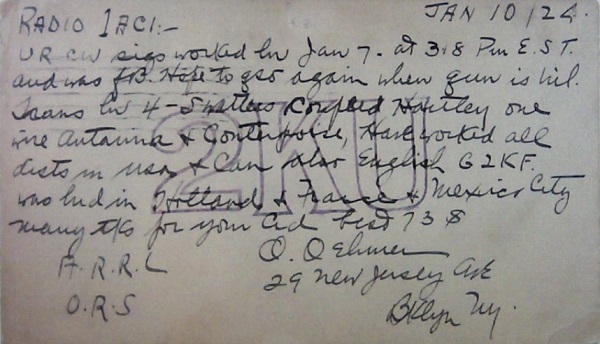 JAN 10/24.
RADIO 1ACI:-
UR CW sigs worked hr Jan 7. at 3:18 Pm E.S.T.
and was FB. Hope to qso again when qrm is nil.
Trans hr 4-5 watters Coupled Hartley one
wire Antanna & Conterpoise, Have worked all
dists in USA & Can also English G2KF.
was hrd in Holland & France & Mexico City
many tks for your Crd best 73s
2KU
O. Oehmen
A.R.R.L
29 New Jersey Ave
O.R.S
BKlyn Ny.